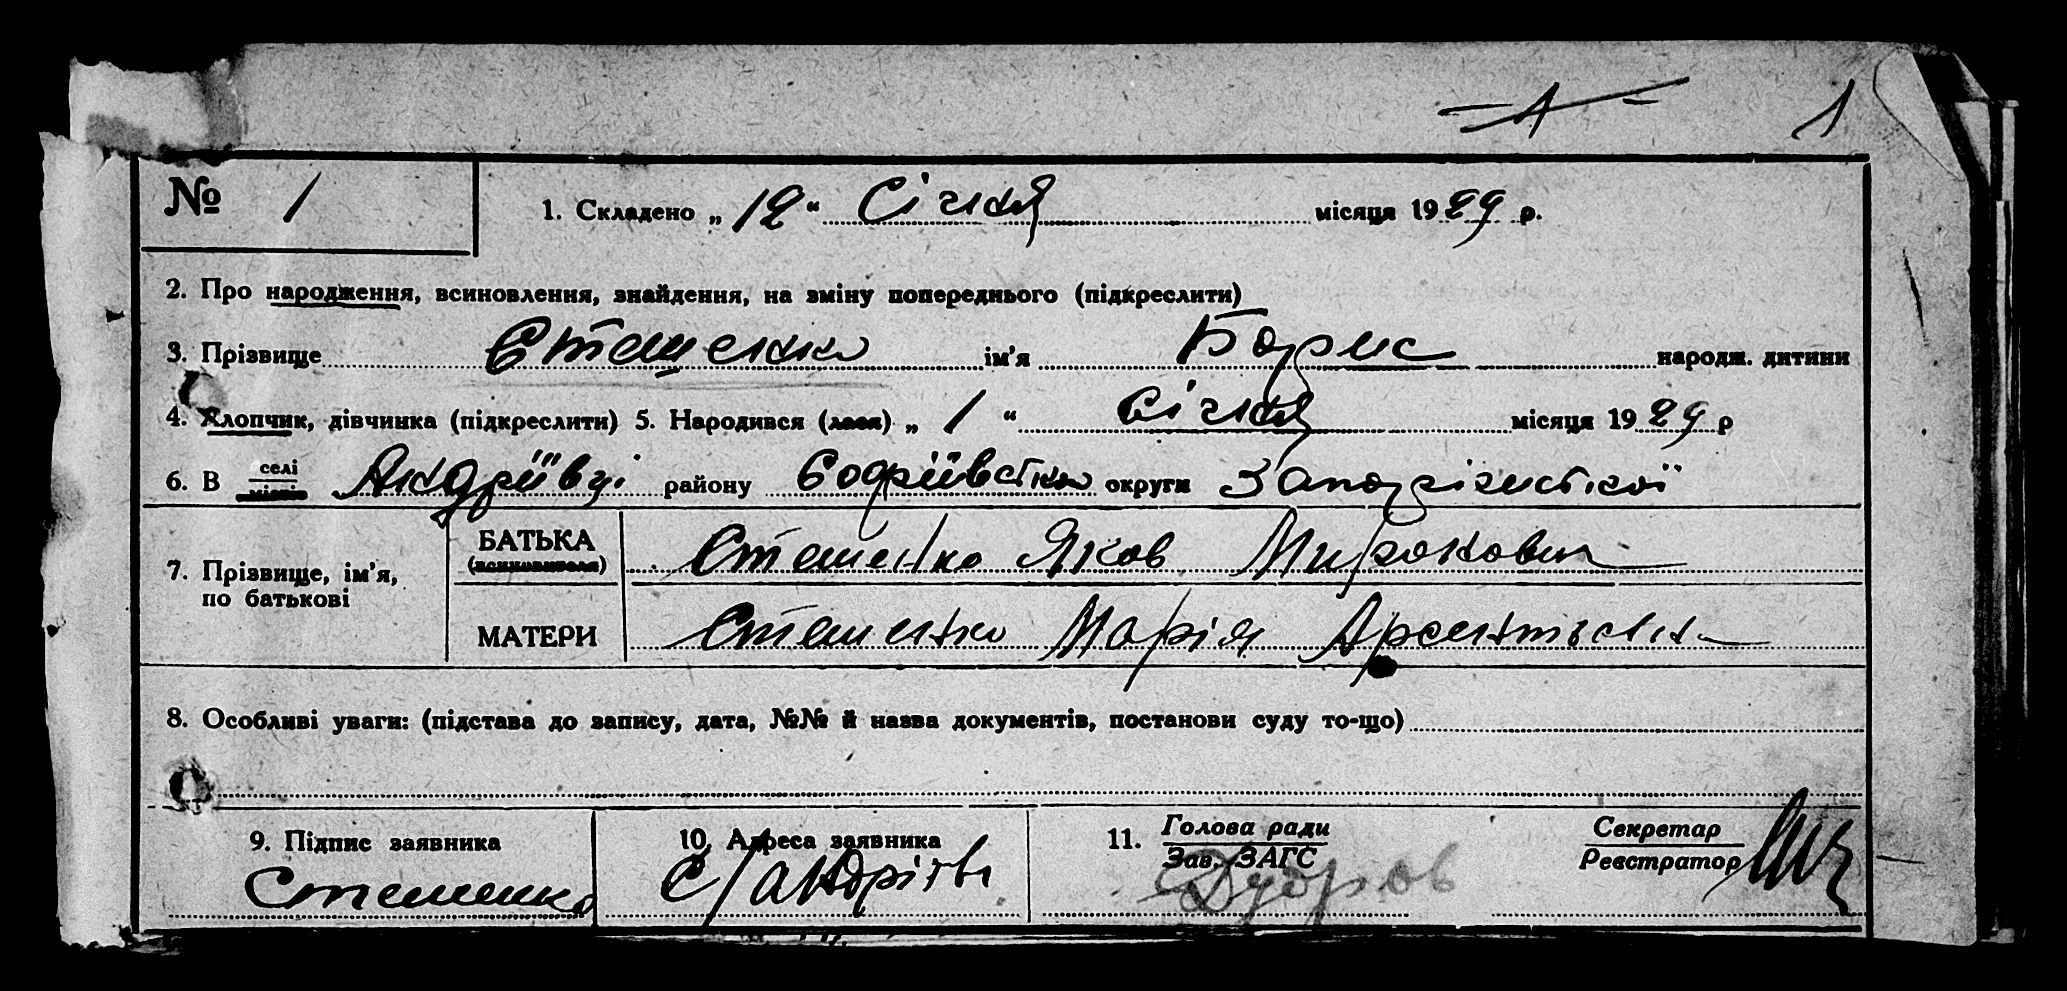 — 1 — 1
№ 1 1. Складено „ 12 “ Січня місяця 1929 р.
2. Про народження, всиновлення, знайдення, на зміну попереднього (підкреслити)
3. Прізвище Стешенко ім’я Борис народж. дитини
4. Хлопчик, дівчинка (підкреслити) 5. Народився (лася) „ 1 “ Січня місяця 1929 р
6. В селі місті Андріївці району Софіївськом округи Запорізькської
7. Прізвище, ім’я, по батькові
БАТЬКА (всиновителя) Стешенко Яков Миронович
МАТЕРИ Стешенко Марія
8. Особливі уваги: (підстава до запису, дата, №№ й назва документів, постанови суду то-що)
9. Підпис заявника 10. Адреса заявника 11. Голова ради Секретар
Зав. ЗАГС Реєстратор
Стешенко Дубров